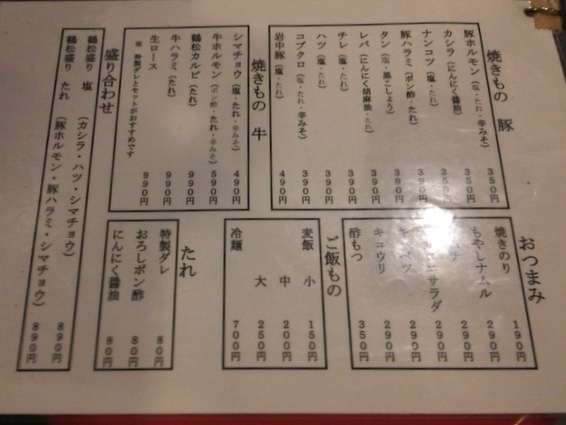 焼きもの 豚
豚ホルモン(塩・たれ・辛みそ) 350円
カシラ(にんにく醤油) 350円
ナンコツ(塩・たれ)
豚ハラミ(ポン酢・たれ) 390円
タン(塩・黒こしょう) 390円
レバ(にんにく胡麻油・たれ) 390円
チレ(塩・たれ) 390円
ハツ(塩・たれ) 390円
コブクロ(塩・たれ・辛みそ) 390円
岩中豚(塩・たれ) 490円
焼きもの 牛
シマチョウ(塩・たれ・辛みそ) 490円
牛ホルモン(ポン酢・たれ・辛みそ) 590円
鶴松カルビ(たれ) 990円
牛ハラミ(たれ) 990円
生ロース 990円
特製ダレとセットがおすすめです
盛り合わせ
鶴松盛り 塩 (カシラ・ハツ・シマチョウ) 890円
鶴松盛り たれ (豚ホルモン・豚ハラミ・シマチョウ) 890円
おつまみ
焼きのり 190円
もやしナムル 290円
290円
サラダ 290円
290円
キュウリ 290円
酢もつ 350円
ご飯もの
麦飯 小 150円
中 200円
大 250円
冷麺 700円
たれ
特製ダレ 80円
おろしポン酢 80円
にんにく醤油 80円